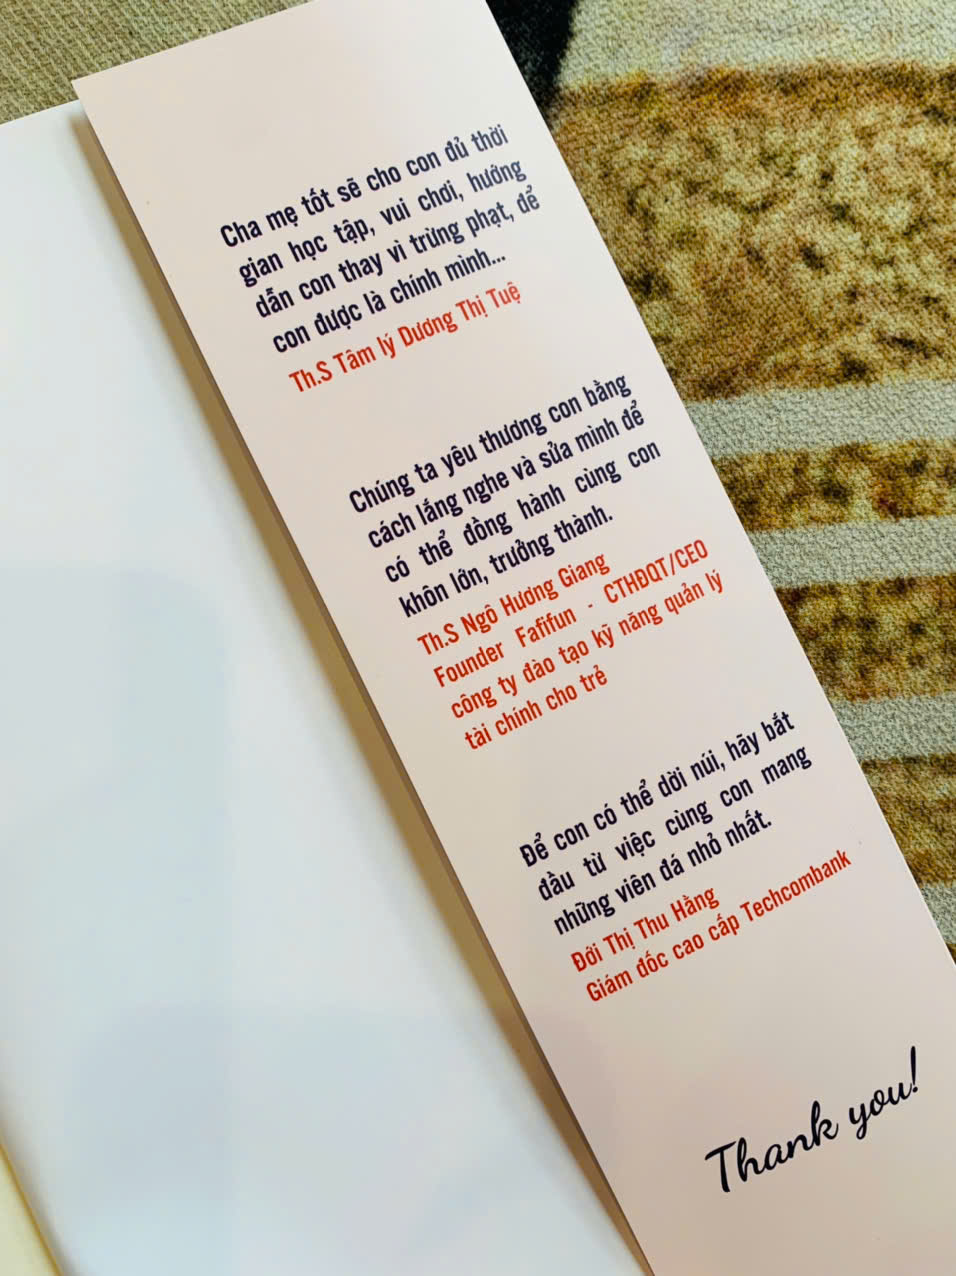 Cha mẹ tốt sẽ cho con đủ thời
gian học tập, vui chơi, hướng
dẫn con thay vì trừng phạt, để
con được là chính mình...
Th.S Tâm lý Dương Thị Tuệ
Chúng ta yêu thương con bằng
cách lắng nghe và sửa mình để
có thể đồng hành cùng con
khôn lớn, trưởng thành.
Th.S Ngô Hương Giang
Founder Fafifun - CTHĐQT/CEO
công ty đào tạo kỹ năng quản lý
tài chính cho trẻ
Để con có thể dời núi, hãy bắt
đầu từ việc cùng con mang
những viên đá nhỏ nhất.
Đới Thị Thu Hằng
Giám đốc cao cấp Techcombank
Thank you!